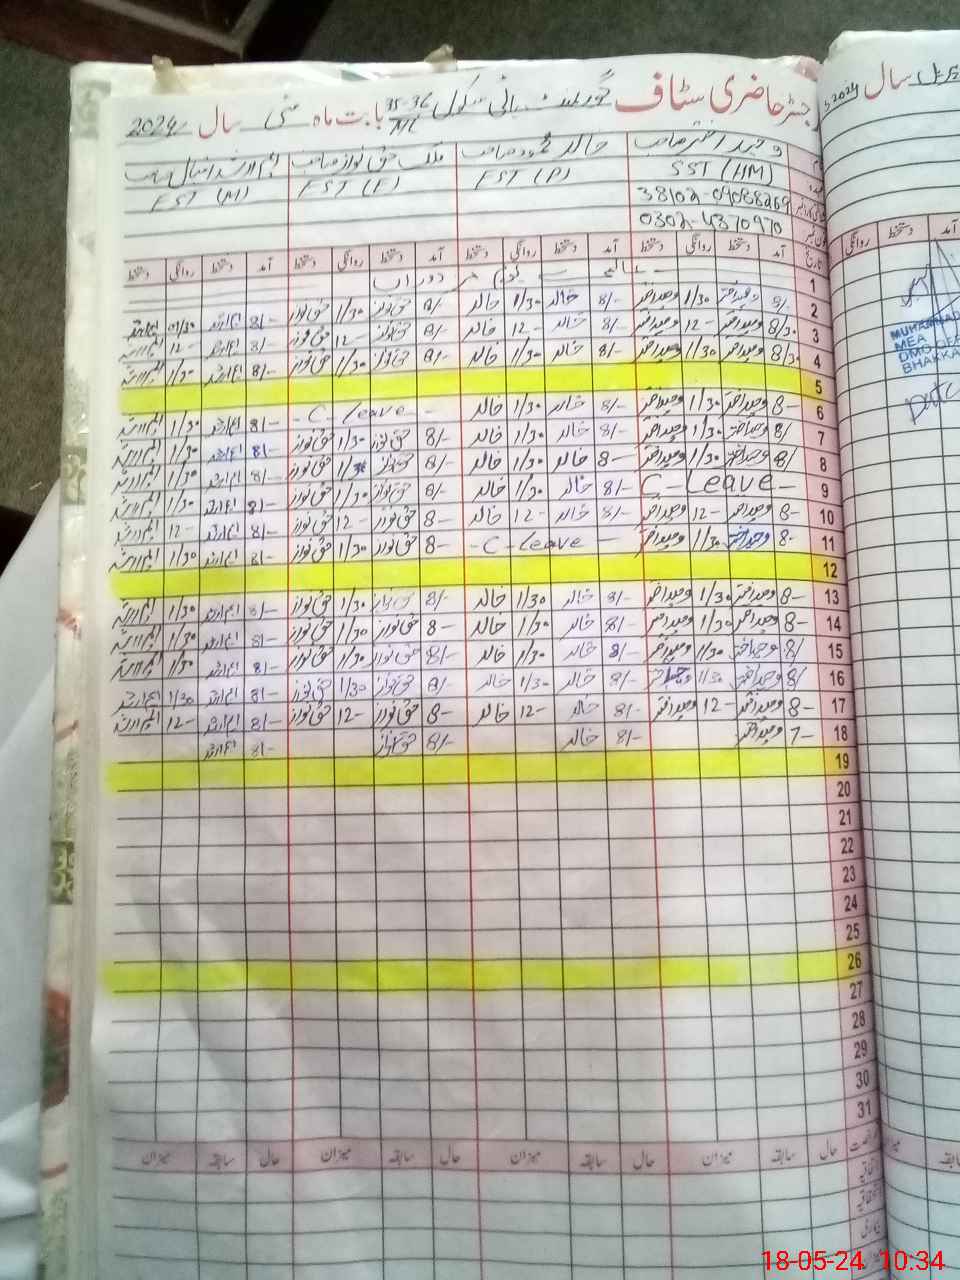 رجسٹر حاضری سٹاف گورنمنٹ ہائی سکول 35-36/ML بابت ماہ مئی سال 2024
وحید اختر صاحب خالد محمود صاحب ملک حق نواز صاحب ایم ارشد اقبال صاحب
SST (HM) EST (P) EST (E) EST (M)
38102-09088269
0302-4370970
تاریخ آمد دستخط روانگی دستخط آمد دستخط روانگی دستخط آمد دستخط روانگی دستخط آمد دستخط روانگی دستخط
1
2 8/- وحید اختر 1/30 وحید اختر 8/- خالد 1/30 خالد 8/- حق نواز 1/30 حق نواز 8/- ایم ارشد 01/30 ایم ارشد
3 8/30 وحید اختر 12- وحید اختر 8/- خالد 12- خالد 8/- حق نواز 12- حق نواز 8/- ایم ارشد 12- ایم ارشد
4 8/30 وحید اختر 1/30 وحید اختر 8/- خالد 1/30 خالد 8/- حق نواز 1/30 حق نواز 8/- ایم ارشد 1/30 ایم ارشد
5
6 8- وحید اختر 1/30 وحید اختر 8/- خالد 1/30 خالد - C - Leave - 8/- ایم ارشد 1/30 ایم ارشد
7 8/ وحید اختر 1/30 وحید اختر 8/- خالد 1/30 خالد 8/- حق نواز 1/30 حق نواز 8/- ایم ارشد 1/30 ایم ارشد
8 8/ وحید اختر 1/30 وحید اختر 8- خالد 1/30 خالد 8/- حق نواز 1/30 حق نواز 8/- ایم ارشد 1/30 ایم ارشد
9 C - Leave - 8/- خالد 1/30 خالد 8/- حق نواز 1/30 حق نواز 8/- ایم ارشد 1/30 ایم ارشد
10 8- وحید اختر 12- وحید اختر 8/- خالد 12- خالد 8- حق نواز 12- حق نواز 8/- ایم ارشد 12- ایم ارشد
11 8- وحید اختر 1/30 وحید اختر - C - Leave - 8- حق نواز 1/30 حق نواز 8/- ایم ارشد 1/30 ایم ارشد
12
13 8- وحید اختر 1/30 وحید اختر 8/- خالد 1/30 خالد 8/- حق نواز 1/30 حق نواز 8/- ایم ارشد 1/30 ایم ارشد
14 8- وحید اختر 1/30 وحید اختر 8/- خالد 1/30 خالد 8- حق نواز 1/30 حق نواز 8/- ایم ارشد 1/30 ایم ارشد
15 8/ وحید اختر 1/30 وحید اختر 8/- خالد 1/30 خالد 8/- حق نواز 1/30 حق نواز 8/- ایم ارشد 1/30 ایم ارشد
16 8/ وحید اختر 1/30 وحید اختر 8/- خالد 1/30 خالد 8/- حق نواز 1/30 حق نواز 8/- ایم ارشد 1/30 ایم ارشد
17 8- وحید اختر 12- وحید اختر 8/- خالد 12- خالد 8- حق نواز 12- حق نواز 8/- ایم ارشد 12- ایم ارشد
18 7- وحید اختر 8/- خالد 8/- حق نواز 8/- ایم ارشد
19
20
21
22
23
24
25
26
27
28
29
30
31
حال سابقہ میزان حال سابقہ میزان حال سابقہ میزان حال سابقہ میزان
اپریل سال 2024
آمد دستخط روانگی
MUHAMMAD
MEA
DMO OFF
BHAKKA
18-05-24 10:34